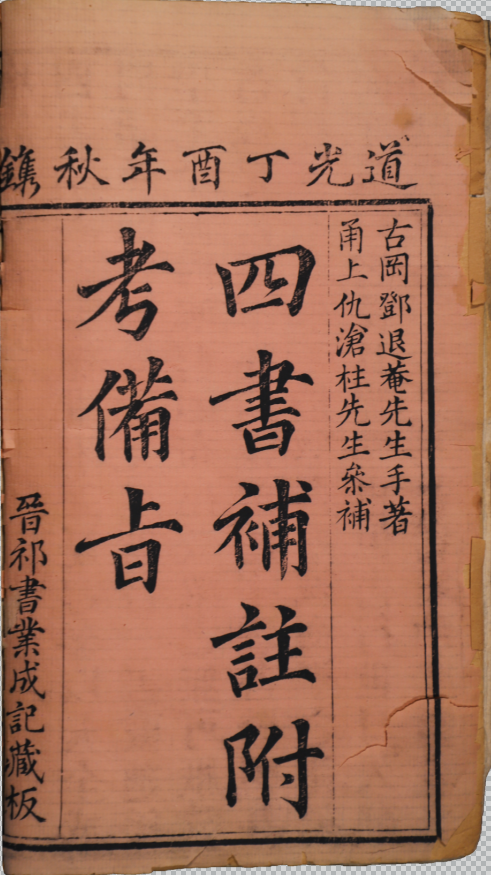 道光丁酉年秋鐫
古岡鄧退菴先生手著
甬上仇滄柱先生叅補
四書補註附
考備旨
晉祁書業成記藏板